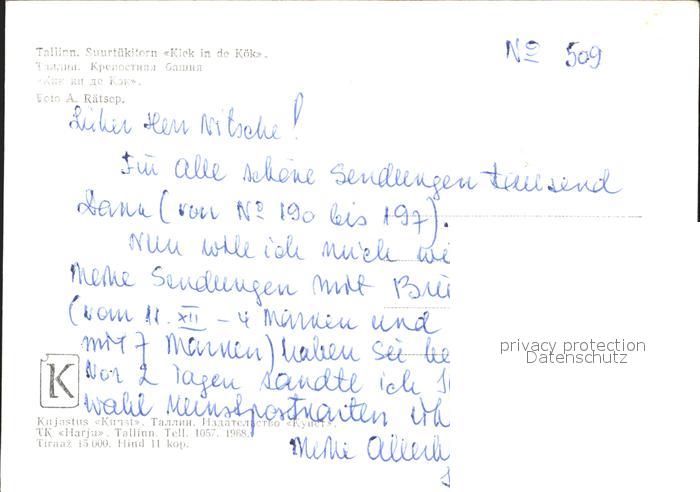 Tallinn. Suurtükitorn «Kiek in de Kök».
Таллин. Крепостная башня
«Кик ин де Кэк».
Foto A. Rätsep.
№ 509
Lieber Herr Nitsche!
Für alle schöne Sendungen tausend
Dank (von № 190 bis 197).
Nun will ich mich wi
Meine Sendungen mit Bri
(vom 11. XII - 4 Marken und
mit 7 Marken) haben Sie be
Vor 2 Tagen sandte ich
wahl Kunstpostkarten
Meine Allerh
K
privacy protection
Datenschutz
Kirjastus «Kunst». Таллин. Издательство «Кунст».
TK «Harju». Tallinn. Tell. 1057. 1968.
Tiraaž 15 000. Hind 11 kop.